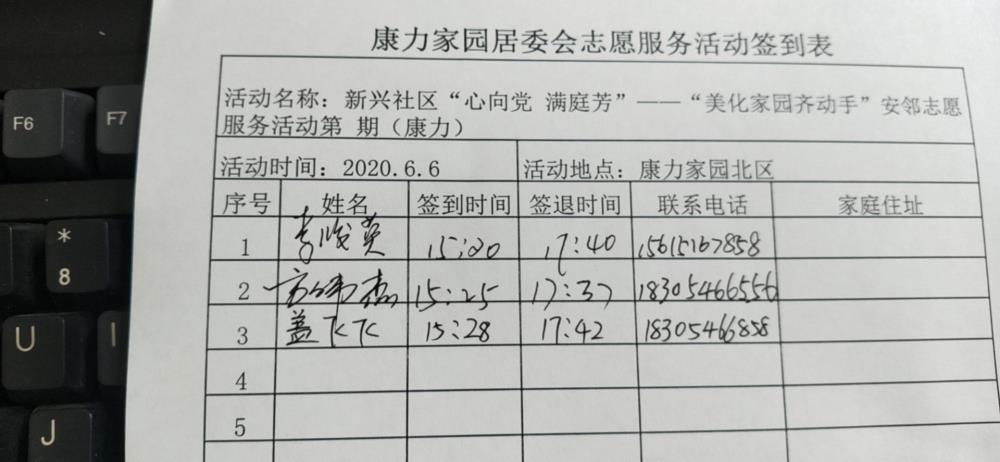 康力家园居委会志愿服务活动签到表
活动名称：新兴社区“心向党 满庭芳”——“美化家园齐动手”安邻志愿
服务活动第 期（康力）
活动时间：2020.6.6 活动地点：康力家园北区
序号 姓名 签到时间 签退时间 联系电话 家庭住址
1 李俊英 15:20 17:40 15615167858
2 15:25 17:37 18305466556
3 盖 15:28 17:42 18305466858
4
5
F6
F7
*
8
U
I
J